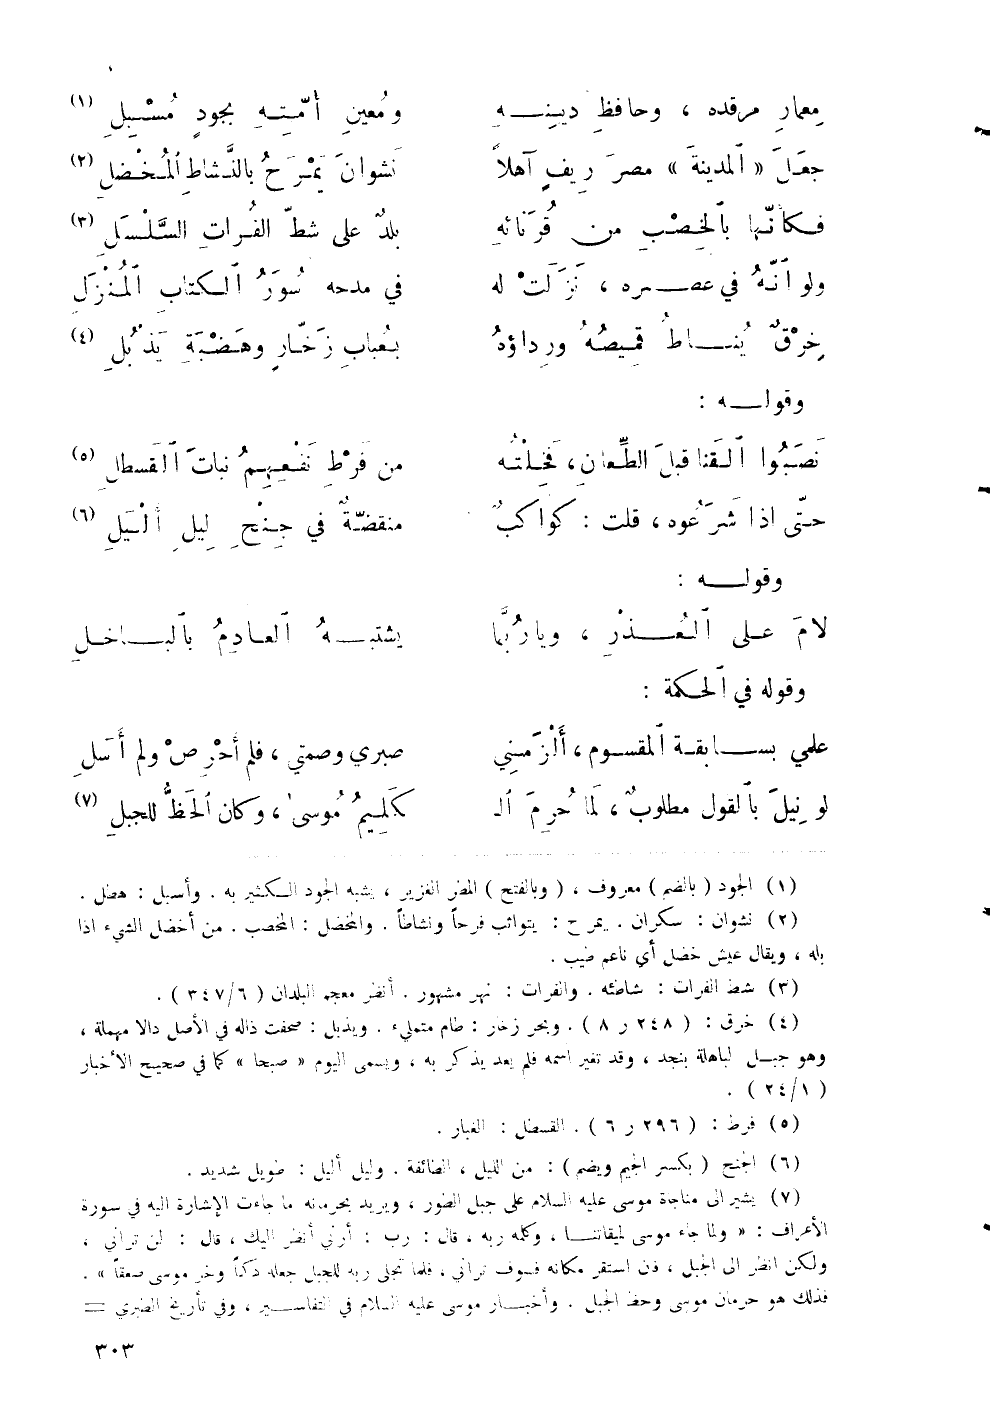 معمارِ مرقده ، وحافظِ دينِـــهِ ومُعينِ أمّتِـهِ بجودٍ مُسْبِلِ (١)
جعَلَ « ٱلمدينةَ » مصرَ ريفٍ آهلاً نَشوانَ يَمْرَحُ بالنَّشاطِ ٱلمُخْضلِ (٢)
فكأنّها بٱلخِصْبِ من قُرَنائهِ بلدٌ على شطّ الفُراتِ السَّلْسَلِ (٣)
ولو ٱنّهُ في عصـــره ، نَزَلَتْ له في مدحه سُوَرُ ٱلكتابِ ٱلمُنْزَلِ
خِرْقٌ يُنـــاطُ قميصُهُ ورداؤهُ بعُبابِ زَخّارٍ وهَضْبَةِ يَذْبُلِ (٤)
وقولـــه :
نَصَبُوا ٱلقَنا قبلَ الطِّعانِ ، فَخِلْتُه من فَرْطِ نَفْعِهِمُ نباتَ ٱلقَسطلِ (٥)
حتّى اذا شَرَعُوه ، قلت : كواكبٌ منقضّةٌ في جِنْحِ ليلٍ أَلْيَلِ (٦)
وقولـــه :
لامَ علـى ٱلعُـــذْرِ ، ويارُبَّما يشتبـــهُ ٱلعـادِمُ بٱلبـــاخلِ
وقوله في ٱلحكمة :
علمي بســـابقة ٱلمقسوم ، أَلْزَمَني صبري وصمتي ، فلم أَحْرِصْ ولم أَسَلِ
لو نِيلَ بٱلقول مطلوبٌ ، لَما حُرِمَ ٱلـ كَلِيمُ مُوسىٰ ، وكان ٱلحَظُّ للجبلِ (٧)
(١) الجود ( بالضم ) معروف ، ( وبالفتح ) المطر الغزير ، يشبه الجود الكثير به . وأسبل : هطل .
(٢) نشوان : سكران . يمرح : يتواثب فرحاً ونشاطاً . والمخضل : المخصب . من أخضل الشيء اذا
بله ، ويقال عيش خضل أي ناعم طيب .
(٣) شط الفرات : شاطئه . والفرات : نهر مشهور . أنظر معجم البلدان ( ٣٤٧/٦ ) .
(٤) خرق : ( ٢٤٨ ر ٨ ) . وبحر زخار : طام متمليء . ويذبل : صحفت ذاله في الأصل دالا مهملة ،
وهو جبـل لباهلة بنجد ، وقد تغير اسمه فلم يعد يذكر به ، ويسمى اليوم « صبحا » كما في صحيح الأخبار
( ٢٤/١ ) .
(٥) فرط : ( ٢٩٦ ر ٦ ) . القسطل : الغبار .
(٦) الجنح ( بكسر الجيم ويضم ) : من الليل ، الطائفة . وليل أليل : طويل شديد .
(٧) يشير الى مناجاة موسى عليه السلام على جبل الطور ، ويريد بحرمانه ما جاءت الإشارة اليه في سورة
الأعراف : « ولما جاء موسى لميقاتنـــا ، وكلمه ربه ، قال : رب : أرني أنظر اليك ، قال : لن تراني ،
ولكن انظر الى الجبل ، فان استقر مكانه فسوف تراني ، فلما تجلى ربه للجبل جعله دكاً وخر موسى صعقاً » .
فذلك هو حرمان موسى وحظ الجبل . وأخبـــار موسى عليه السلام في التفاســـير ، وفي تأريخ الطبري =
٣٠٣